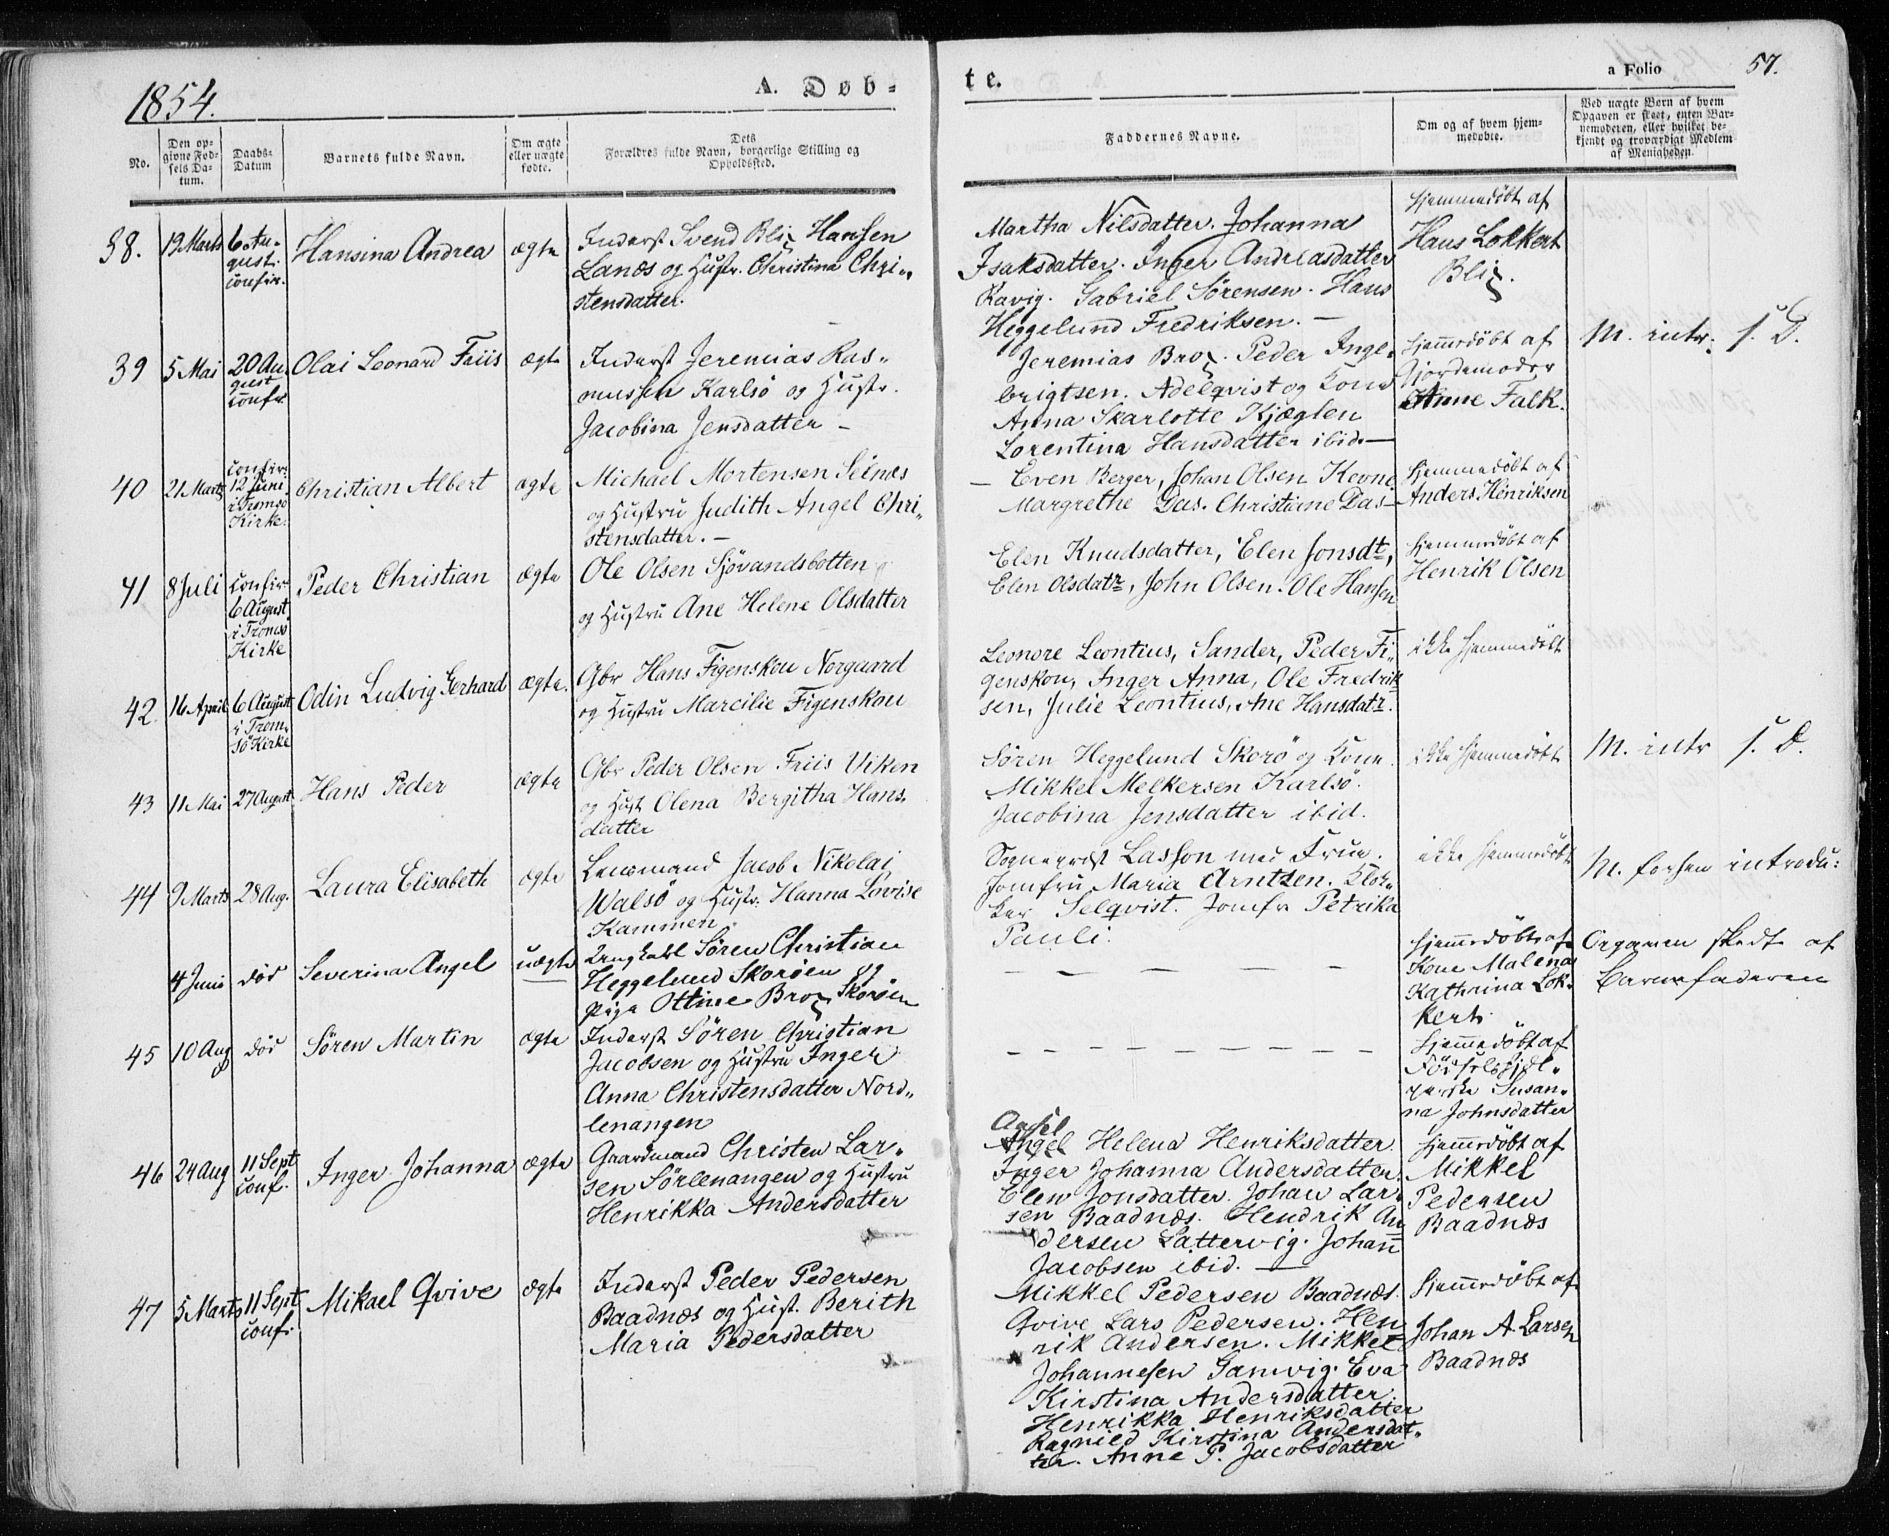 1854.
A. Døb-
te.
a Folio
57.
No.
Den op-
givne Fød-
sels Da-
tum.
Daabs-
Datum
Barnets fulde Navn.
Om ægte
eller uægte
fødte.
Dets
Forældres fulde Navn, borgerlige Stilling og
Opholdssted.
Faddernes Navne.
Om og af hvem hjem-
medøbte.
Ved uægte Børn af hvem
Opgaven er skeet, enten Bar-
nemoderen, eller hvilket be-
kjendt og troværdigt Medlem
af Menigheden.
38.
19 Marts
6 Au-
gust.
confir.
Hansina Andrea
ægte
Inderst Svend Blix Hansen
Lanæs og Hustr. Christina Chri-
stensdatter.
Martha Nilsdatter. Johanna
Isaksdatter. Inger Andreasdatter
Ravig. Gabriel Sørensen. Hans
Heggelund Fredriksen. —
Hjemmedøbt af
Hans Lokkert
Blix.
39
5 Mai
20 Au-
gust
conf.
Olai Leonard Friis
ægte
Inderst Jeremias Ras-
mussen Karlsö og Hustr.
Jacobina Jensdatter —
Jeremias Brox. Peder Inge-
brigtsen. Adelqvist og Kone
Anna Skarlotte Kjæglen
Lorentina Hansdatter ibid. —
Hjemedøbt af
Gjordemoder
Anne Falk.
M. intr. s. D.
40
21 Marts
confir.
12 Juni
i Tromsö
Kirke.
Christian Albert
ægte
Michael Mortensen Selnæs
og Hustru Judith Angel Chri-
stensdatter. —
— Even Berger, Johan Olsen Kone
Margrethe Das. Christine Das —
Hjemmedöbt af
Anders Henriksen
41
8 Juli
confir.
6 August
i Tromsö
Kirke
Peder Christian
ægte
Ole Olsen Sjövandsbotten
og Hustru Ane Helene Olsdatter
Elen Knudsdatter, Elen Jonsdt,
Elen Olsdatr, John Olsen. Ole Hansen
Hjemmedøbt af
Henrik Olsen
42.
16 April
6 August
i Trom-
sö Kirke
Odin Ludvig Gerhard
ægte.
Gbr Hans Figenskou Norgaard
og Hustru Marcilie Figenskou
Leonore Leontius, Sander, Peder Fi-
genskou, Inger Anna, Ole Fredrik-
sen, Julie Leontius, Ane Hansdatr.
ikke hjemmedöbt
43
11 Mai
27 August
Hans Peder
ægte
Gbr Peder Olsen Friis Viken
og Hust Olena Bergitha Hans
datter
Søren Heggelund Skorö og Kone.
Mikkel Melkersen Karlsö.
Jacobina Jensdatter ibid.
ikke hjemmedöbt
M. intr s. D.
44
9 Marts
28 Aug.
Laura Elisabeth
ægte
Lensmand Jacob Nikolai
Walsö og Hustr. Hanna Lovise
Kammen
Sognepræst Lasson med Frue.
Jomfru Maria Arntzen. Klok-
ker Selqvist. Jomfr Petrika
Pauli.
ikke hjemmedøbt
M. forhen introdu:
4 Juni
död
Severina Angel
uægte
Ungkarl Søren Christian
Heggelund Skoröen og
Pige Ottine Brox, Skoröen
— — — —
Hjemedøbt af
Kone Malena
Kathrina Lok-
kert.
Opgaven skedt af
Barnefaderen
45
10 Aug
död
Søren Martin
ægte
Inderst Søren Christian
Jacobsen og Hustru Inger
Anna Christensdatter Nord-
lenangen
— — — — — — — — —
Hjemedøbt af
Susan-
na Johnsdatter
46
24 Aug
11 Sept
conf.
Inger Johanna
ægte
Gaardmand Christen Lar-
sen Sörlenangen og Hustru
Henrikka Andersdatter
Angel
Angel Helena Henriksdatter.
Inger Johanna Andersdatter.
Elen Jonsdatter. Johan Lar-
sen Baadnæs. Hendrik An
dersen Lattervig. Johan
Jacobsen ibid. —
Hjemedøbt af
Mikkel
Pedersen
Baadnæs
47
5 Marts
11 Sept
conf.
Mikael Qvive
ægte
Inderst Peder Pedersen
Baadnæs og Hust. Berith
Maria Pedersdatter
Mikkel Pedersen Baadnæs.
Qvive Lars Pedersen. Hen
rik Andersen. Mikkel
Johannesen Gamvig. Eva
Kirstina Andersdatter.
Henrikka Henriksdatter
Ragnild Kirstina Andersdat-
ter. Anne P. Jacobsdatter
Hjemedøbt af
Johan A. Larsen
Baadnæs